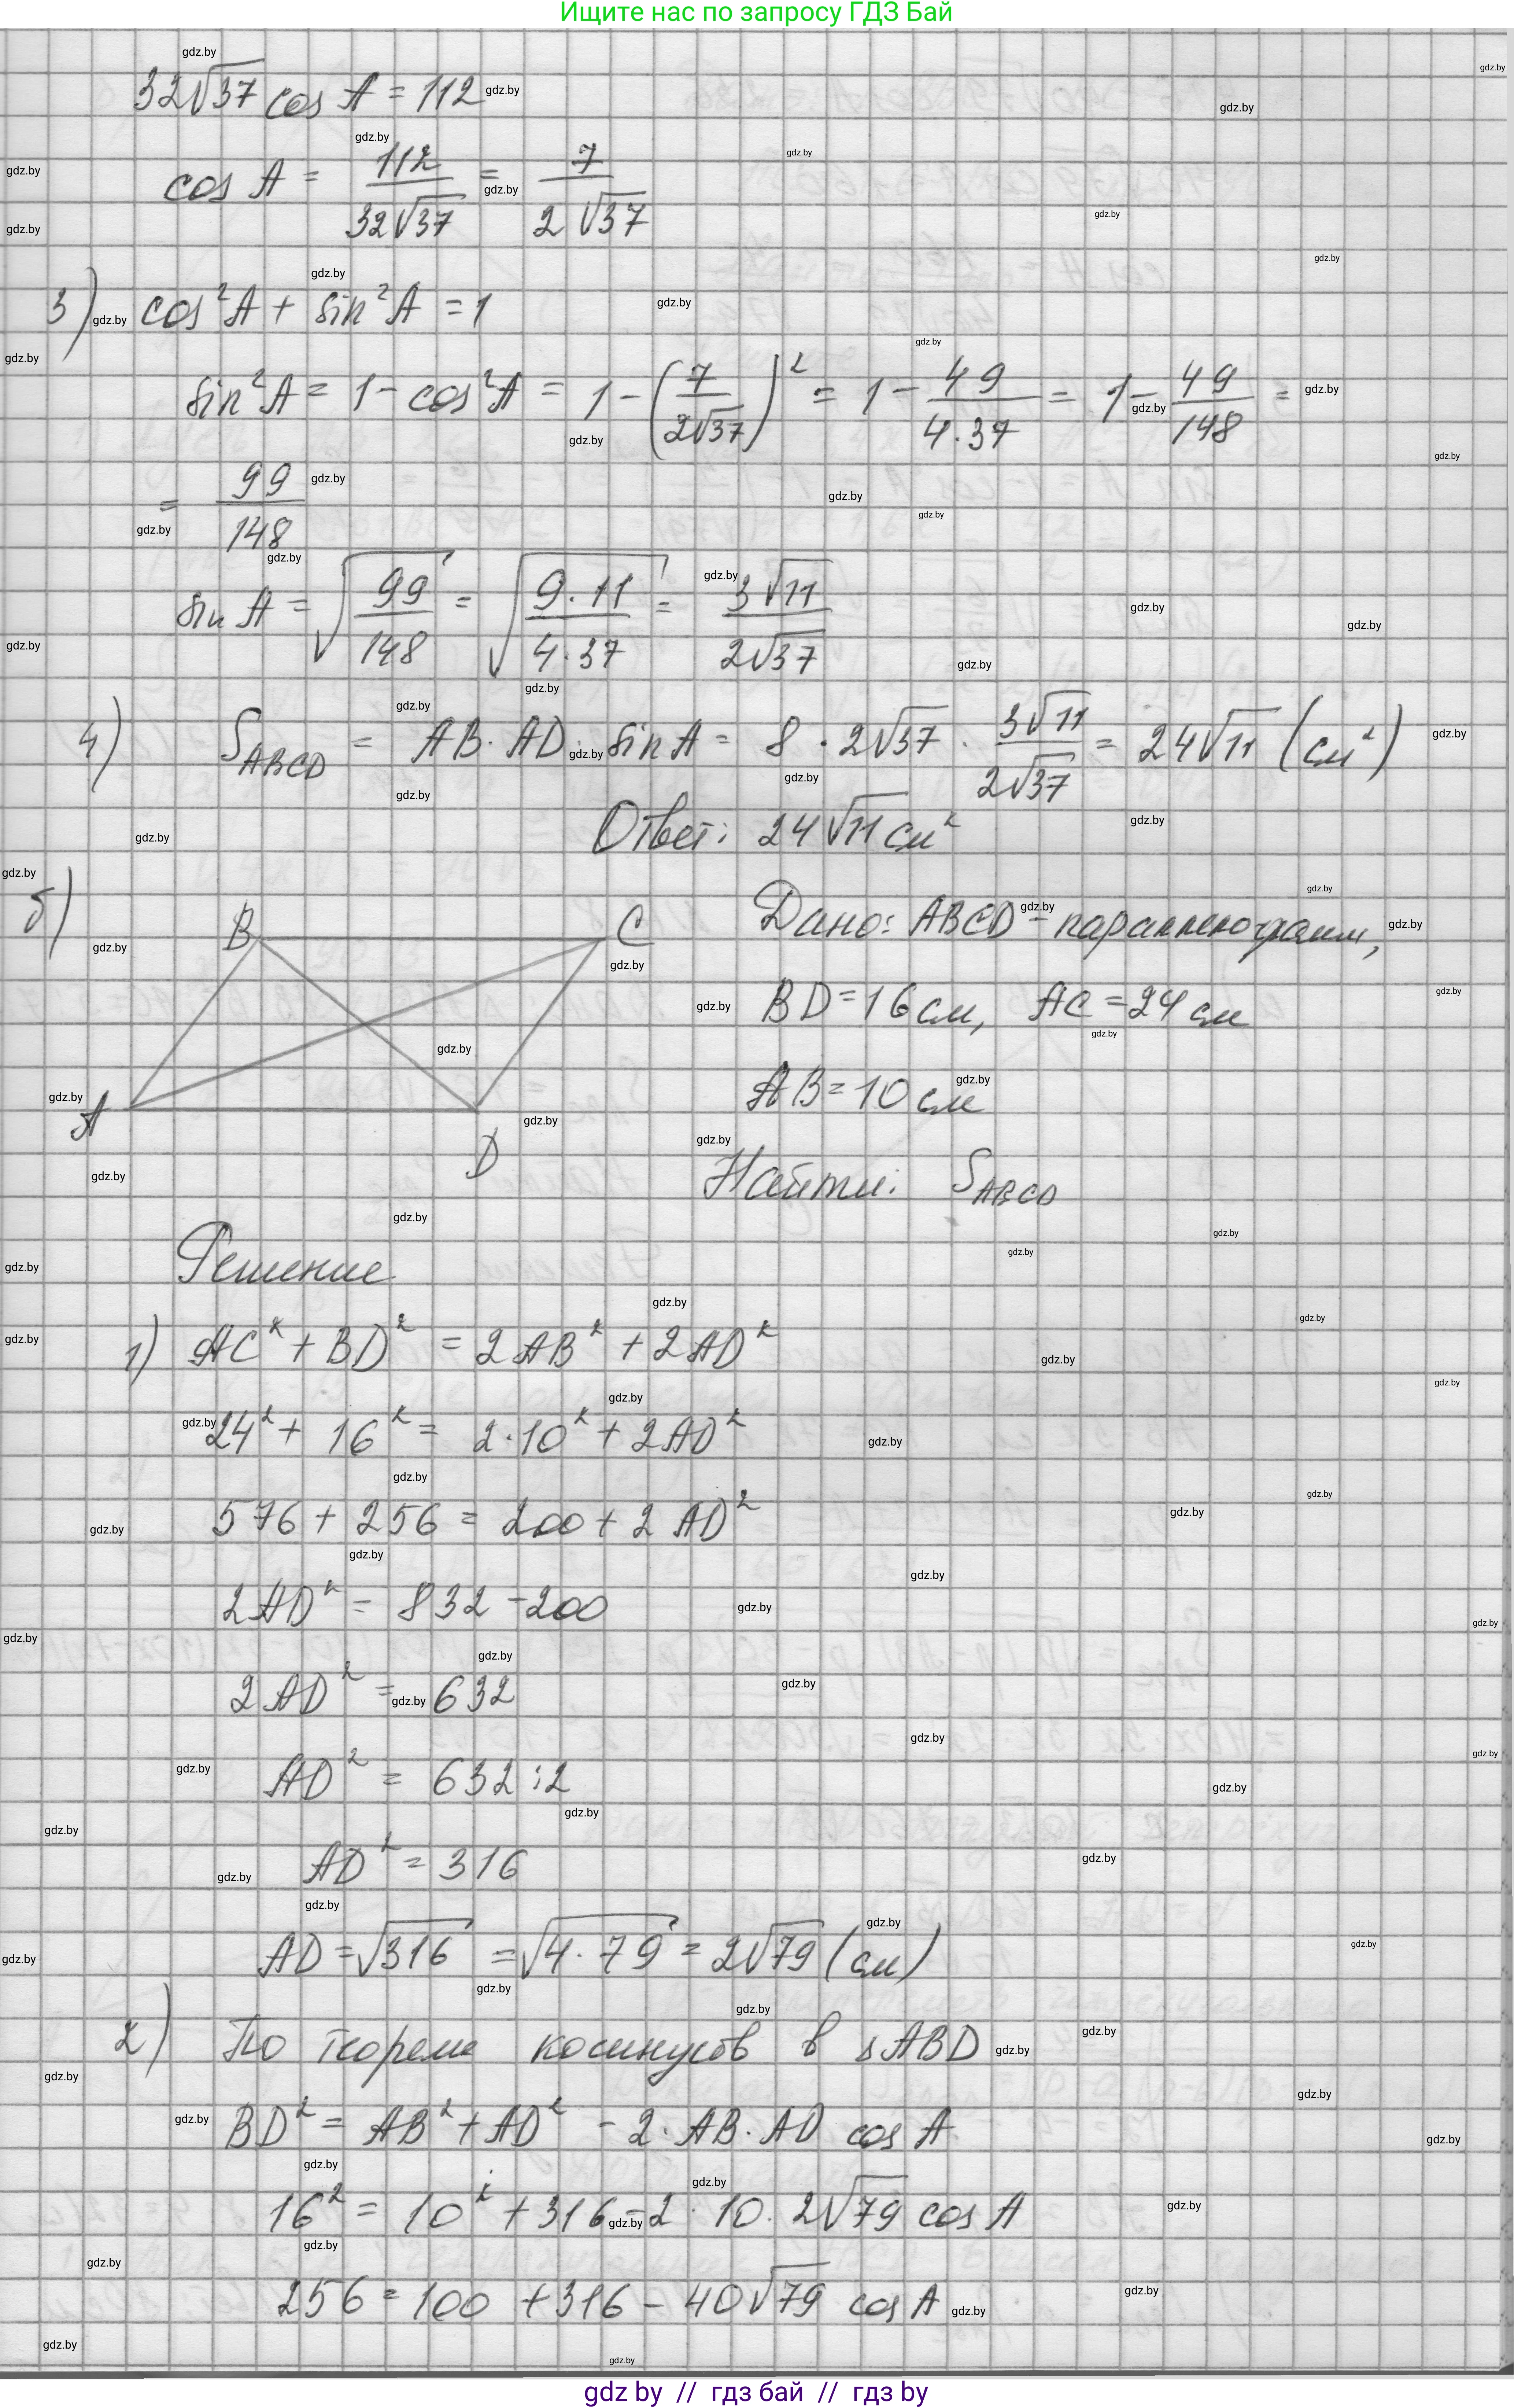 Ищите нас по запросу ГДЗ Бай
32√37 cos A = 112
cos A = 112/(32√37) = 7/(2√37)
3) cos²A + sin²A = 1
sin²A = 1 - cos²A = 1 - (7/(2√37))² = 1 - 49/(4·37) = 1 - 49/148 =
= 99/148
sin A = √(99/148) = √(9·11/(4·37)) = 3√11/(2√37)
4) S_ABCD = AB · AD · sin A = 8 · 2√37 · 3√11/(2√37) = 24√11 (см²)
Ответ: 24√11 см²
б)
B C
A D
Дано: ABCD - параллелограмм,
BD = 16 см, AC = 24 см
AB = 10 см
Найти: S_ABCD
Решение
1) AC² + BD² = 2AB² + 2AD²
24² + 16² = 2·10² + 2AD²
576 + 256 = 200 + 2AD²
2AD² = 832 - 200
2AD² = 632
AD² = 632 : 2
AD² = 316
AD = √316 = √(4·79) = 2√79 (см)
2) По теореме косинусов в ΔABD
BD² = AB² + AD² - 2·AB·AD cos A
16² = 10² + 316 - 2·10·2√79 cos A
256 = 100 + 316 - 40√79 cos A
gdz by // гдз бай // гдз by